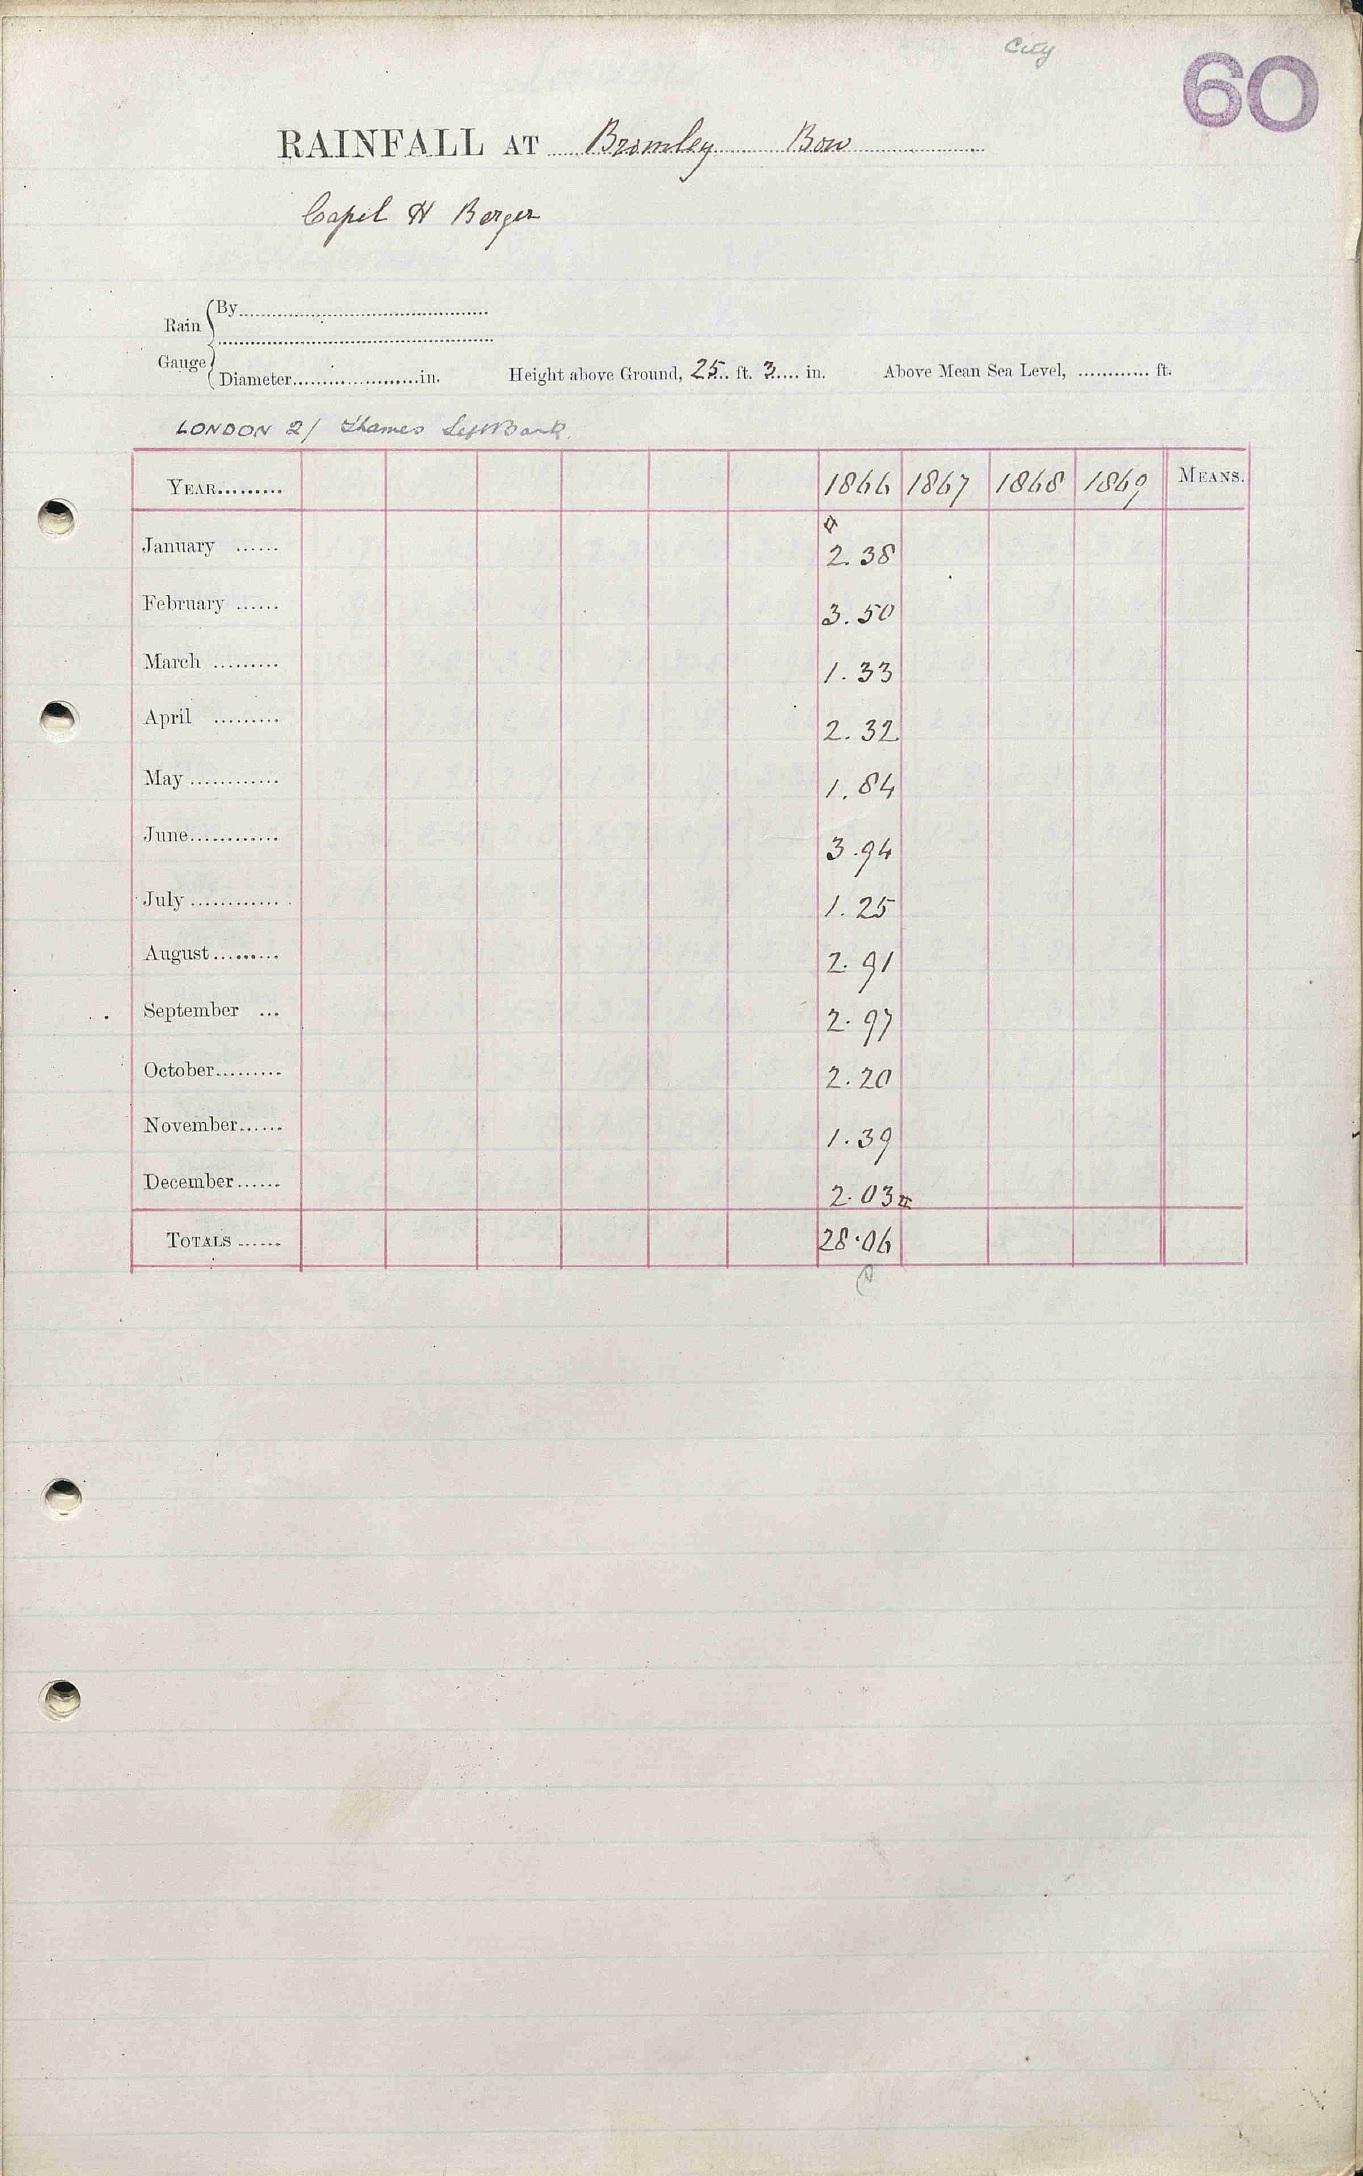 City
60
RAINFALL AT Bromley Bow
Capel H Berger
Rain Gauge
By
Diameter in. Height above Ground, 25 ft. 3 in. Above Mean Sea Level, ft.
LONDON 2/ Thames Left Bank.
YEAR 1866 1867 1868 1869 MEANS.
January 2.38
February 3.50
March 1.33
April 2.32
May 1.84
June 3.94
July 1.25
August 2.91
September 2.97
October 2.20
November 1.39
December 2.03
TOTALS 28.06